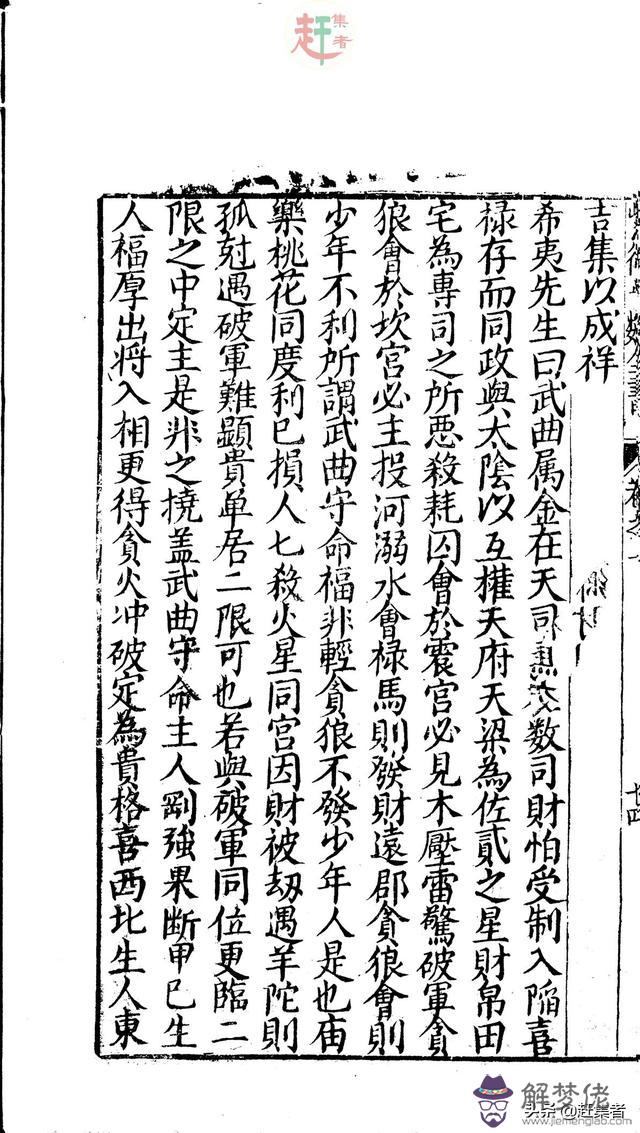 赶集者
吉集以成祥
希夷先生曰武曲属金在天司壽在数司財怕受制入陥喜
禄存而同政與太陰以互權天府天梁為佐貳之星財帛田
宅為專司之所惡殺耗囚會於震宫必見木壓雷驚破軍貪
狼會於坎宫必主投河溺水會禄馬則發財遠郡貪狼會則
少年不利所謂武曲守命福非輕貪狼不發少年人是也庙
樂桃花同度利已損人七殺火星同宫因財被刼遇羊陀則
孤尅遇破軍難顕貴单居二限可也若與破軍同位更臨二
限之中定主是非之撓盖武曲守命主人剛強果断甲已生
人福厚出將入相更得貪火冲破定為貴格喜西北生人東
十四
解梦佬
头条@赶集者
www.jiemenglao.com